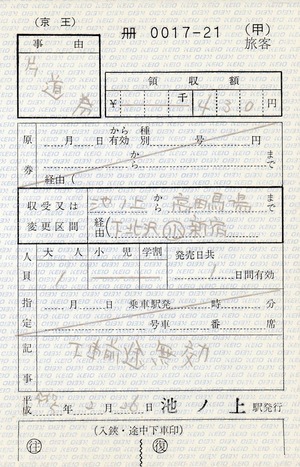 (京王)
冊 0017-21 (甲)
旅客
事由
片道券
領収額
¥ 千 430 円
原券
月 日から有効 種別 号 円
から まで
経由(
収受又は変更区間
池ノ上 から 高田馬場 まで
経由(下北沢 新宿
人員
大人 小児 学割 発売日共
1 1 日間有効
指定
月 日 乗車駅発 時 分
号車 番 席
記事
下車前途無効
平成 2年 2月 26日 池ノ上 駅発行
(入鋏・途中下車印)
往 復